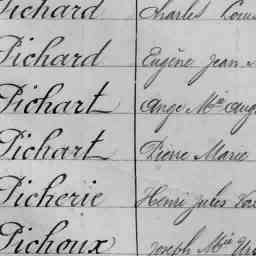 Pichard Charles Louis
Pichard Eugène Jean
Pichart Ange Mie Aug
Pichart Pierre Marie
Picherie Henri Jules
Pichoux Joseph Mie